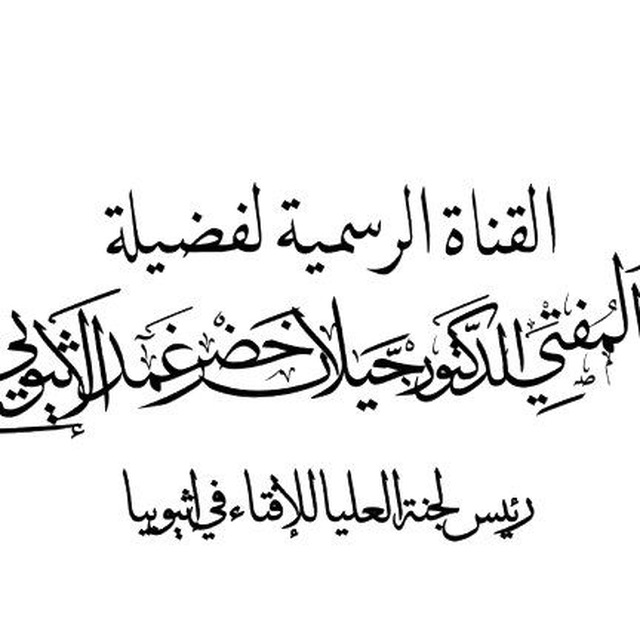 القناة الرسمية لفضيلة
المفتي الدكتور جيلان خضر غمدا الإثيوبي
رئيس لجنة العليا للإفتاء في إثيوبيا